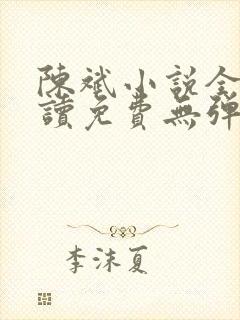 陳斌小說全
讀免費無彈
李沫夏